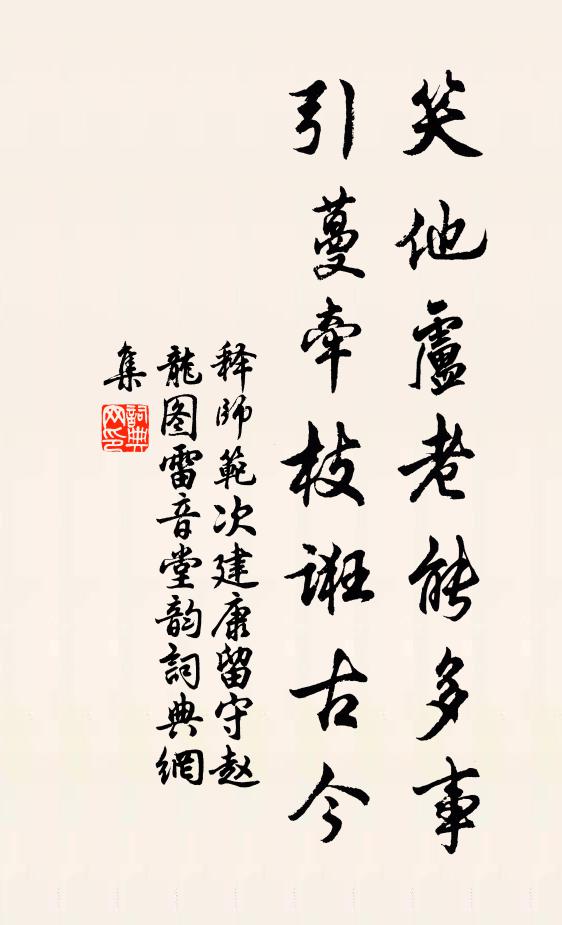 笑他盧老能多事
引蔓牽枝誑古今
释師範次建康留守赵
龍图雷音堂韵詞典網
集
詞典
网印